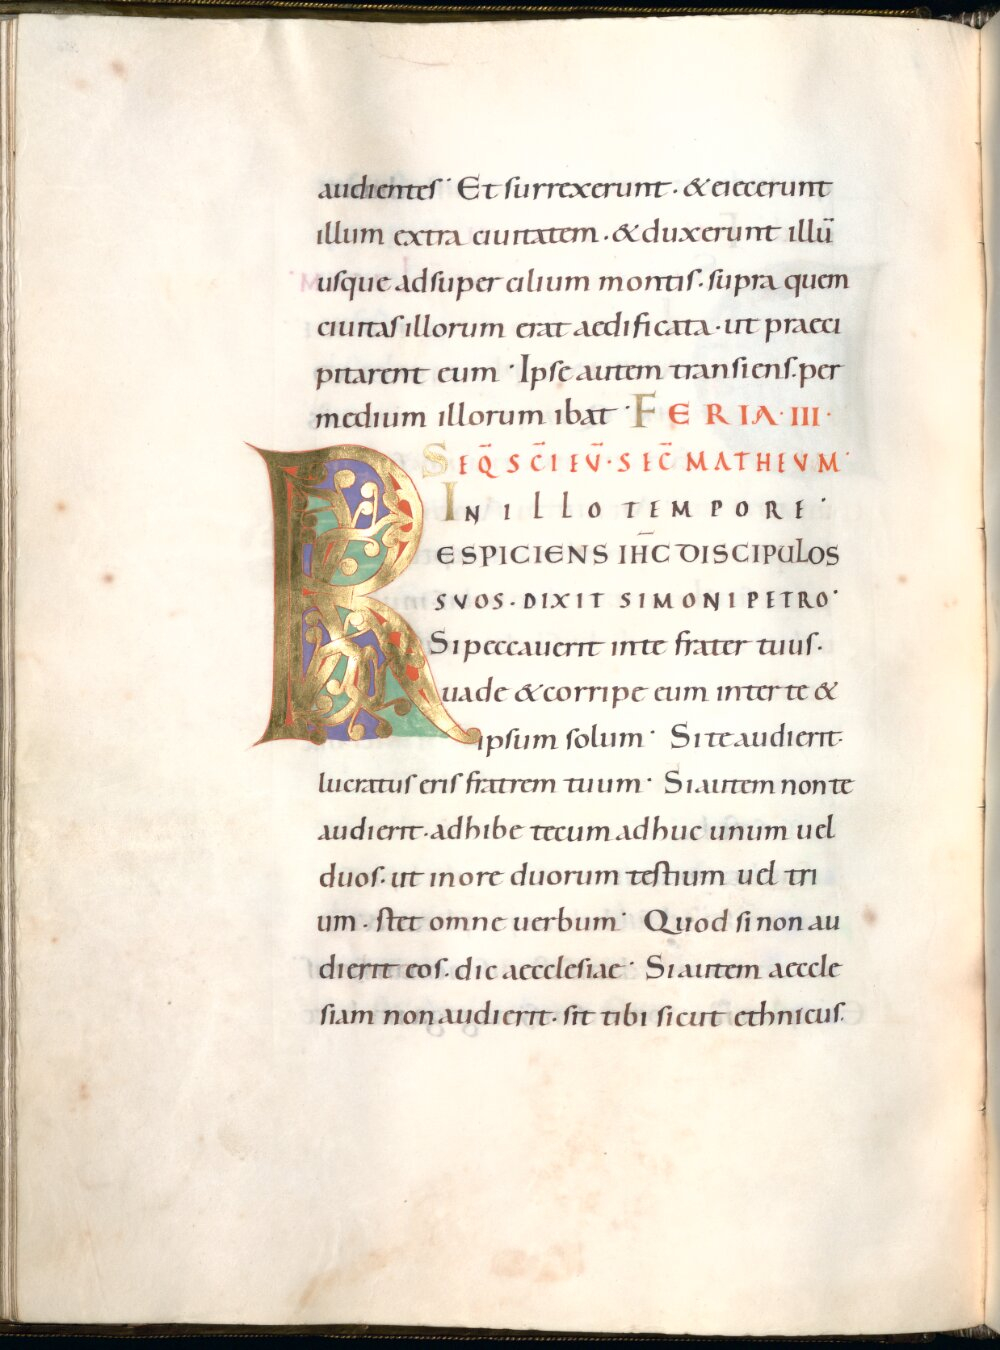 audientes· Et surrexerunt· & eiecerunt
illum extra ciuitatem· & duxerunt illū
usque ad super cilium montis· supra quem
ciuitas illorum erat aedificata· ut praeci
pitarent eum· Ipse autem transiens· per
medium illorum ibat· FERIA· III·
SEQ̄ SC̄I EV̄· SEC̄ MATHEVM·
IN ILLO TEMPORE·
RESPICIENS IH̄C DISCIPULOS
SVOS· DIXIT SIMONI PETRO·
Si peccauerit in te frater tuus·
uade & corripe eum inter te &
ipsum solum· Si te audierit·
lucratus eris fratrem tuum· Si autem non te
audierit· adhibe tecum adhuc unum uel
duos· ut in ore duorum testium uel tri
um· stet omne uerbum· Quod si non au
dierit eos· dic aecclesiae· Si autem aeccle
siam non audierit· sit tibi sicut ethnicus·